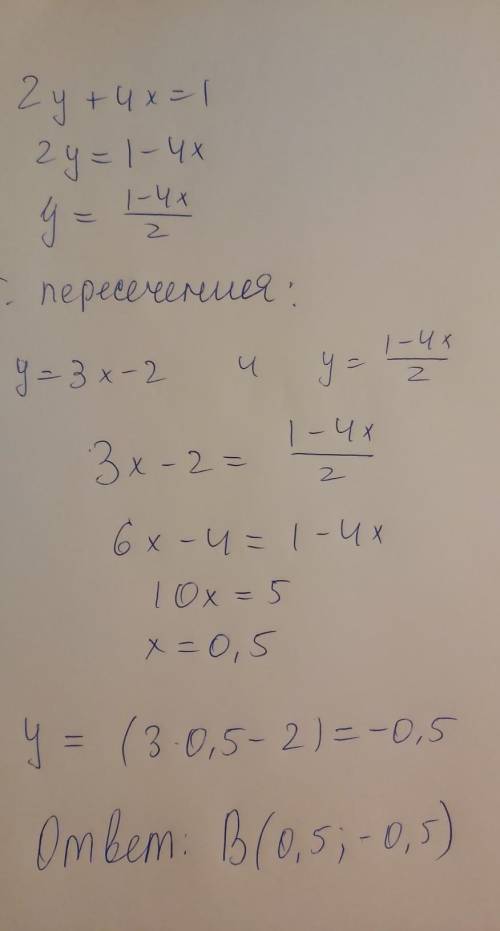 2y + 4x = 1
2y = 1 - 4x
y = (1-4x)/2
т. пересечения:
y = 3x - 2 и y = (1-4x)/2
3x - 2 = (1-4x)/2
6x - 4 = 1 - 4x
10x = 5
x = 0,5
y = (3·0,5 - 2) = -0,5
Ответ: B(0,5; -0,5)